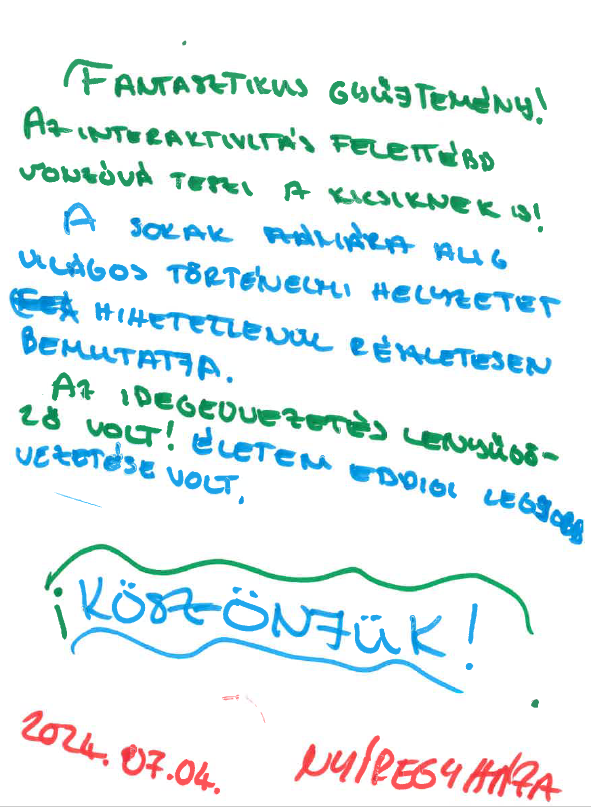 FANTASZTIKUS GYŰJTEMÉNY!
AZ INTERAKTIVITÁS FELETTÉBB
VONZÓVÁ TESZI A KICSIKNEK IS!
A SOKAK SZÁMÁRA ALIG
VILÁGOS TÖRTÉNELMI HELYZETET
HIHETETLENÜL RÉSZLETESEN
BEMUTATJA.
AZ IDEGENVEZETÉS LENYŰGÖ-
ZŐ VOLT! ÉLETEM EDDIGI LEGJOBB
VEZETÉSE VOLT.
¡KÖSZÖNJÜK!
2024.07.04. NYÍREGYHÁZA